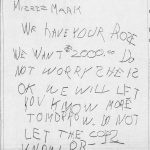 MARK
WE HAVE YOUR
WE WANT $2000.00 DO
NOT WORRY SHE IS
OK WE WILL LET
YOU KNOW MORE
TOMORROW. DO NOT
LET THE COPS
KNOW OR